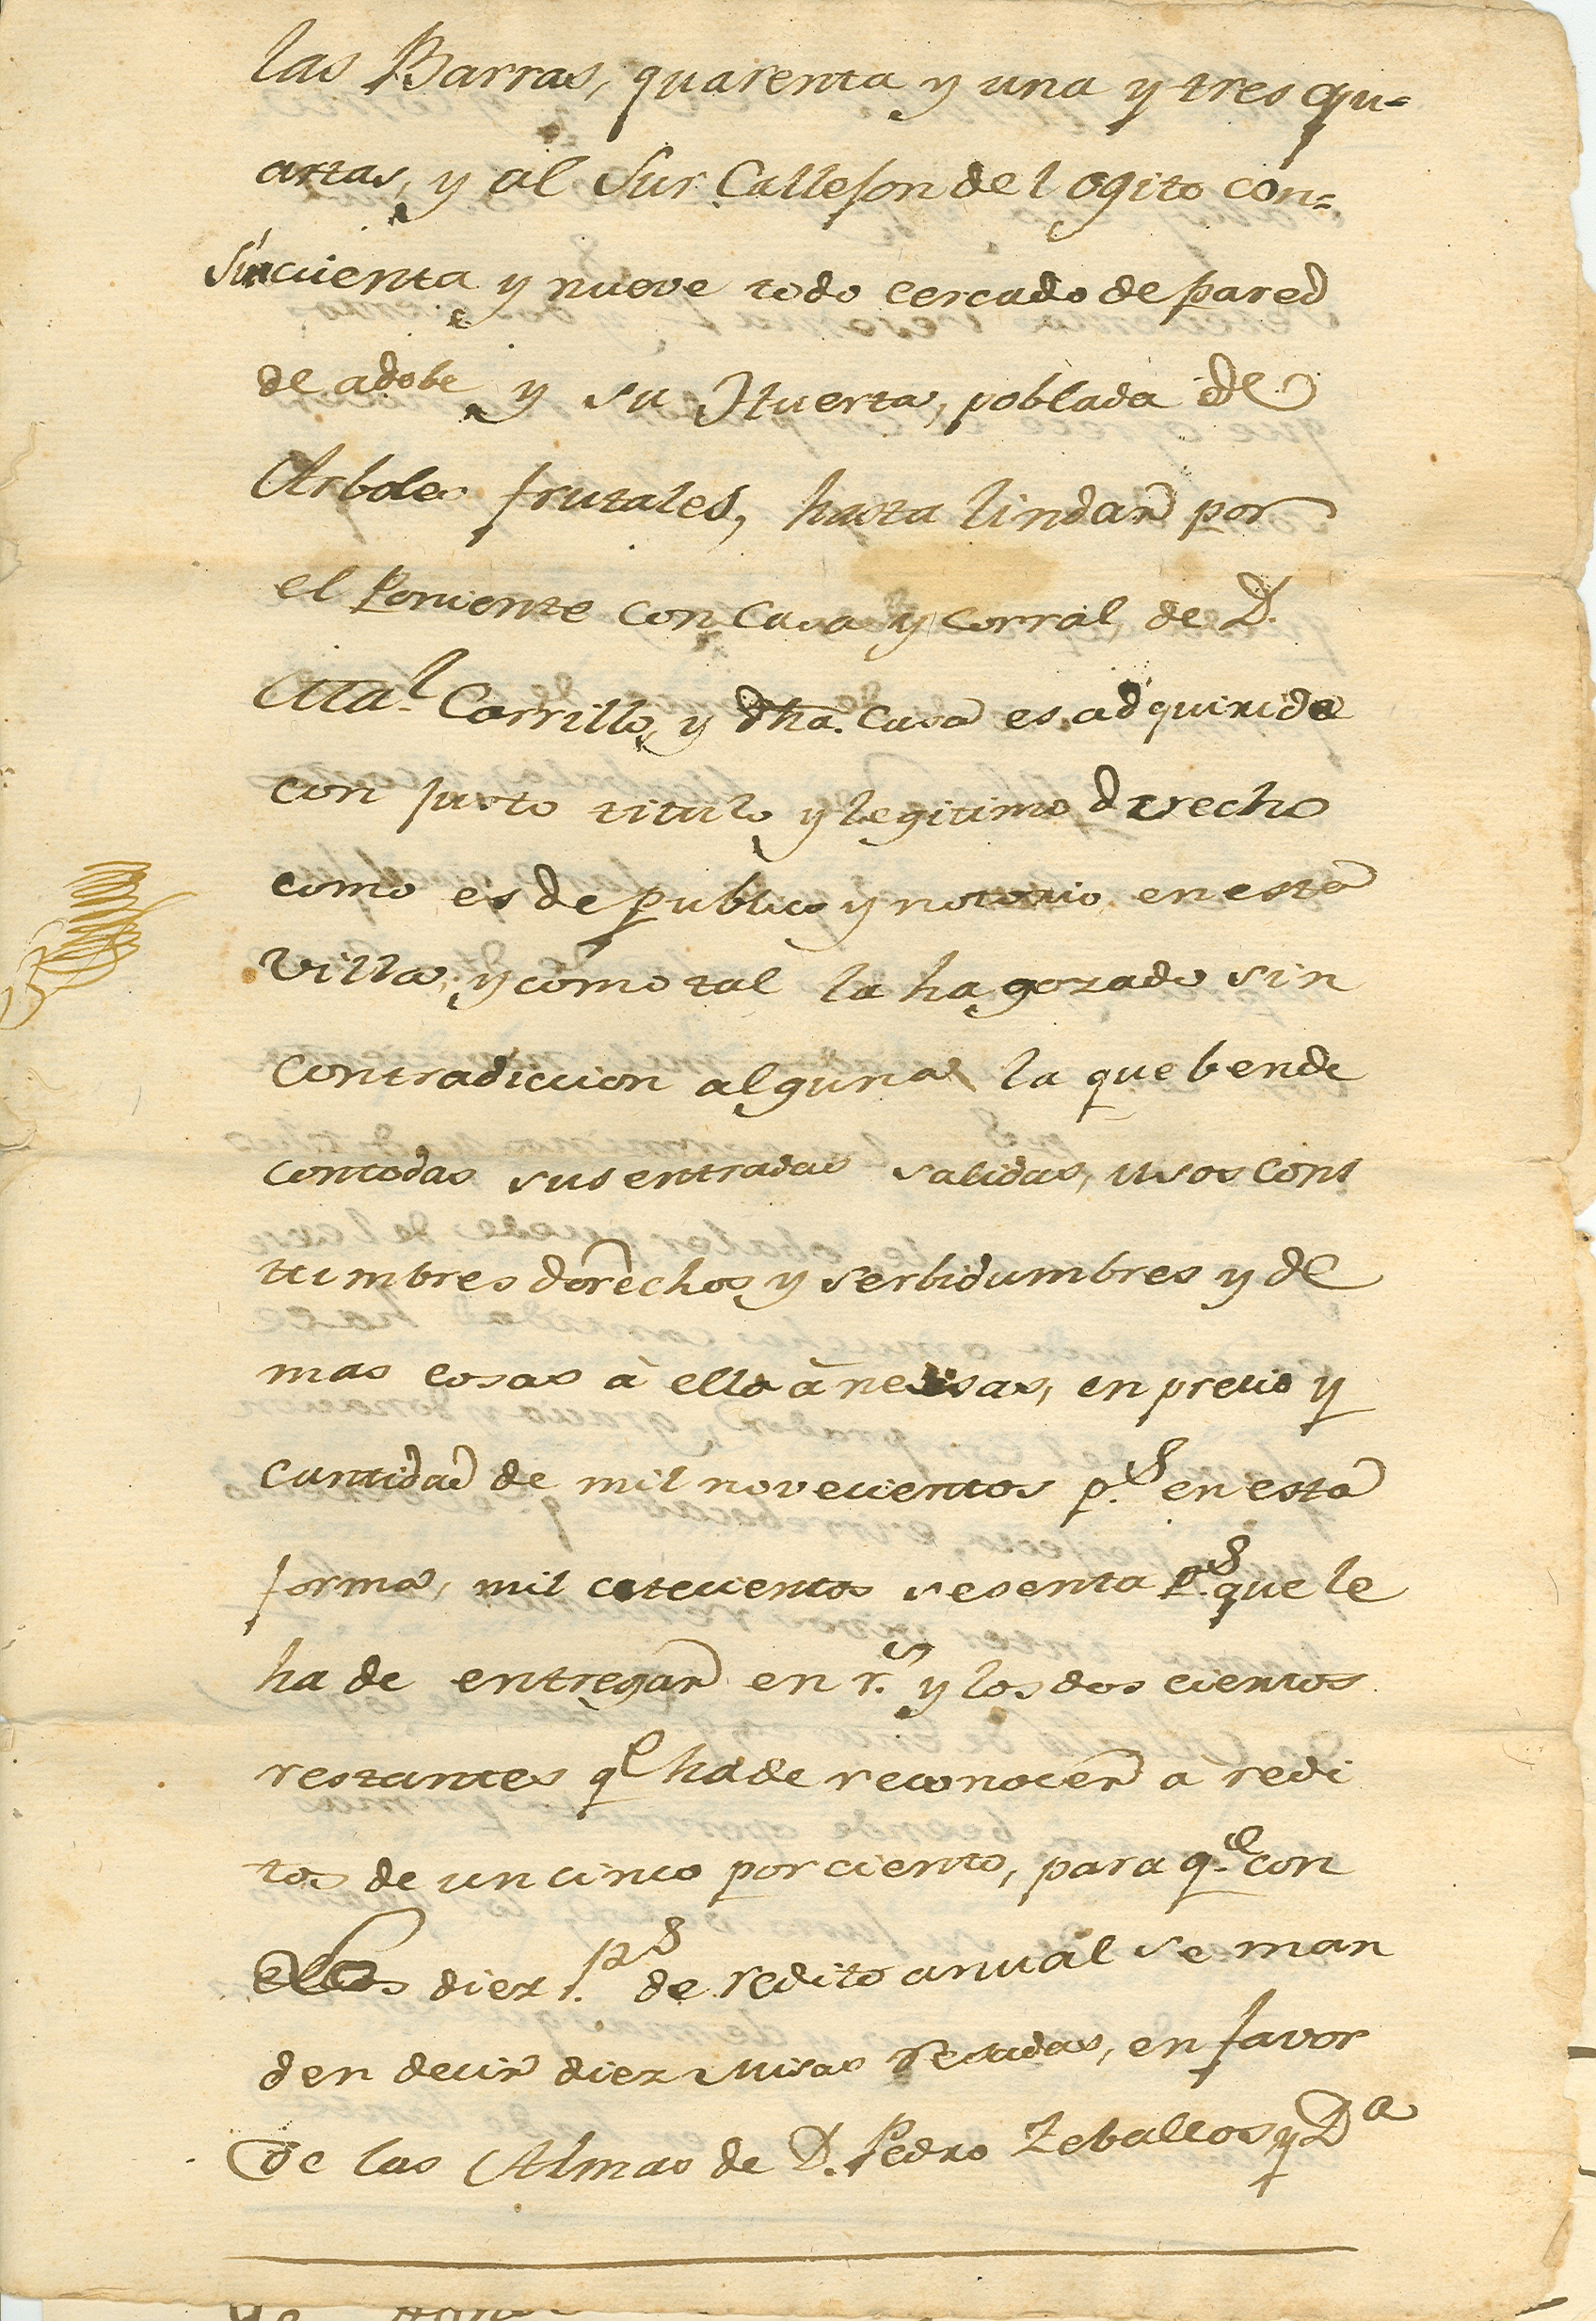 las Barras, quarenta y una y tres qu=
artas, y al Sur Calleson del ogito con=
Sincuenta y nueve todo cercado de pared
de adobe y su Huerta, poblada de
Arboles frutales, hasta lindar por
el Poniente con Casa y corral de D.
Ma.l Carrillo, y dha. Casa es adquirida
con justo titulo y legitimo derecho
como es de publico y notorio en esta
Villa, y como tal la ha gozado sin
Contradiccion alguna la que bende
con todas sus entradas salidas, usos cons
tumbres derechos, y serbidumbres y de
mas cosas à ello à nessas, en precio y
cantidad de mil novecientos p.s en esta
forma, mil setecientos sesenta p.s que le
ha de entregar en r.s y los dos cientos
restantes q.e ha de reconocer a redi
tos de un cinco por ciento, para q.e con
Ellos diez p.s de redito anual se man
den decir diez Misas resadas, en favor
De las Almas de D. Pedro Zeballos y D.a